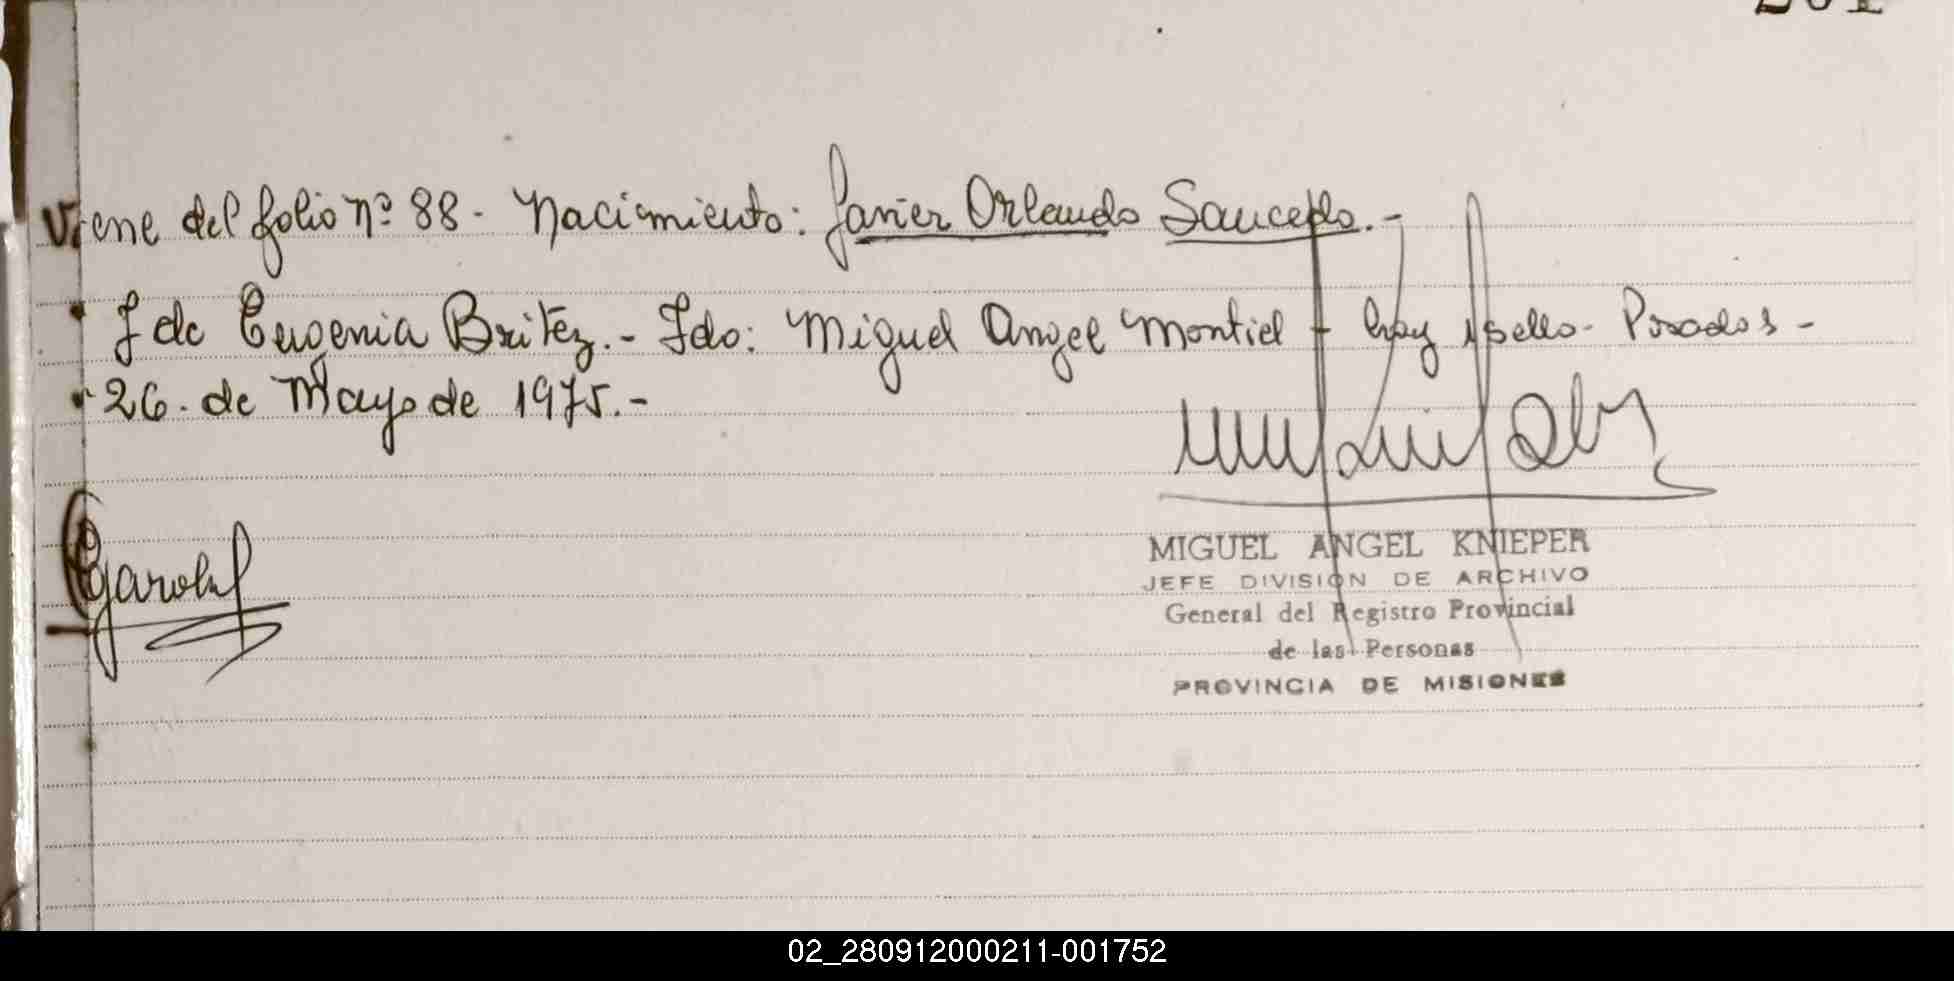 Viene del folio nº 88 - Nacimiento: Javier Orlando Saucedo.-
F de Eugenia Britez.- Fdo: Miguel Angel Montiel - hay sello - Posadas -
26 de Mayo de 1975.-
MIGUEL ANGEL KNIEPER
JEFE DIVISION DE ARCHIVO
General del Registro Provincial
de las Personas
PROVINCIA DE MISIONES
02_280912000211-001752